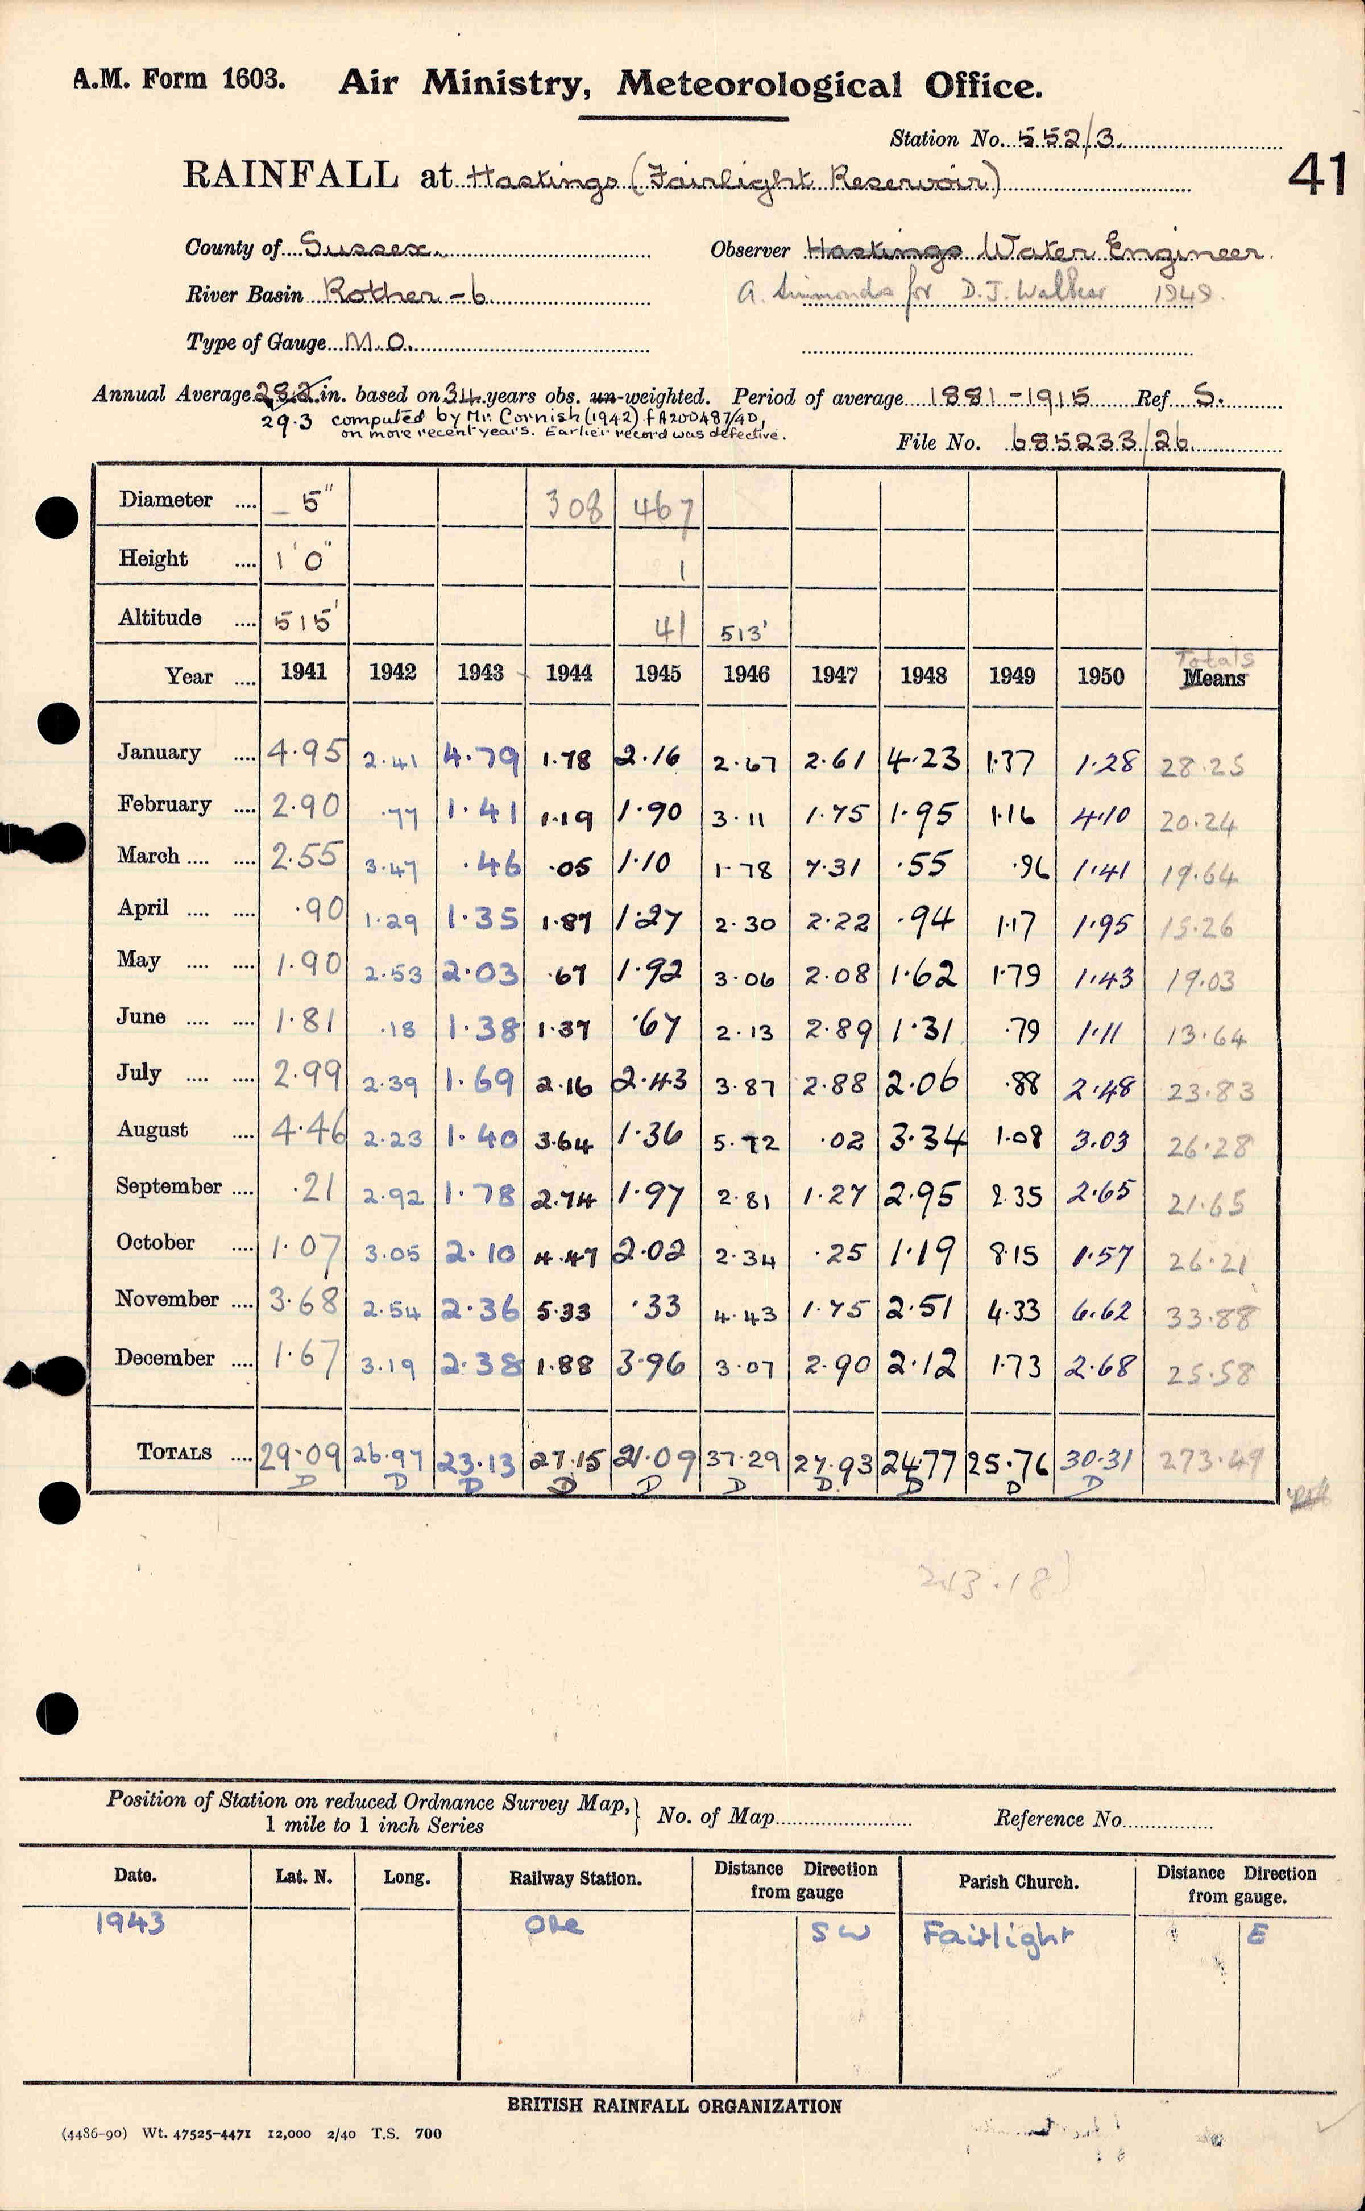 A.M. Form 1603. Air Ministry, Meteorological Office.
Station No. 552/3.
41
RAINFALL at Hastings (Fairlight Reservoir)
County of Sussex. Observer Hastings Water Engineer.
River Basin Rother - 6 A. Simmonds for D. J. Walker 1949.
Type of Gauge M.O.
Annual Average 28.2 in. based on 34 years obs. un-weighted. Period of average 1881-1915 Ref S.
29.3 computed by Mr. Cornish (1942) fA200487/40,
on more recent years. Earlier record was defective.
File No. 685233/26
Diameter .... 5" 308 467
Height .... 1'0" 1
Altitude .... 515' 41 513'
Year .... 1941 1942 1943 1944 1945 1946 1947 1948 1949 1950 Totals Means
January .... 4.95 2.41 4.79 1.78 2.16 2.67 2.61 4.23 1.37 1.28 28.25
February .... 2.90 .77 1.41 1.19 1.90 3.11 1.75 1.95 1.16 4.10 20.24
March .... .... 2.55 3.47 .46 .05 1.10 1.78 7.31 .55 .96 1.41 19.64
April .... .... .90 1.29 1.35 1.87 1.27 2.30 2.22 .94 1.17 1.95 15.26
May .... .... 1.90 2.53 2.03 .67 1.92 3.06 2.08 1.62 1.79 1.43 19.03
June .... .... 1.81 .18 1.38 1.37 .67 2.13 2.89 1.31 .79 1.11 13.64
July .... .... 2.99 2.39 1.69 2.16 2.43 3.87 2.88 2.06 .88 2.48 23.83
August .... 4.46 2.23 1.40 3.64 1.36 5.72 .02 3.34 1.08 3.03 26.28
September .... .21 2.92 1.78 2.74 1.97 2.81 1.27 2.95 2.35 2.65 21.65
October .... 1.07 3.05 2.10 4.47 2.02 2.34 .25 1.19 8.15 1.57 26.21
November .... 3.68 2.54 2.36 5.33 .33 4.43 1.75 2.51 4.33 6.62 33.88
December .... 1.67 3.19 2.38 1.88 3.96 3.07 2.90 2.12 1.73 2.68 25.58
TOTALS .... 29.09 26.97 23.13 27.15 21.09 37.29 27.93 24.77 25.76 30.31 273.49
D D D D D D D. D D D
243.18
Position of Station on reduced Ordnance Survey Map, 1 mile to 1 inch Series } No. of Map Reference No.
Date. Lat. N. Long. Railway Station. Distance Direction from gauge Parish Church. Distance Direction from gauge.
1943 Ore SW Fairlight E
BRITISH RAINFALL ORGANIZATION
(4486-90) Wt. 47525-4471 12,000 2/40 T.S. 700